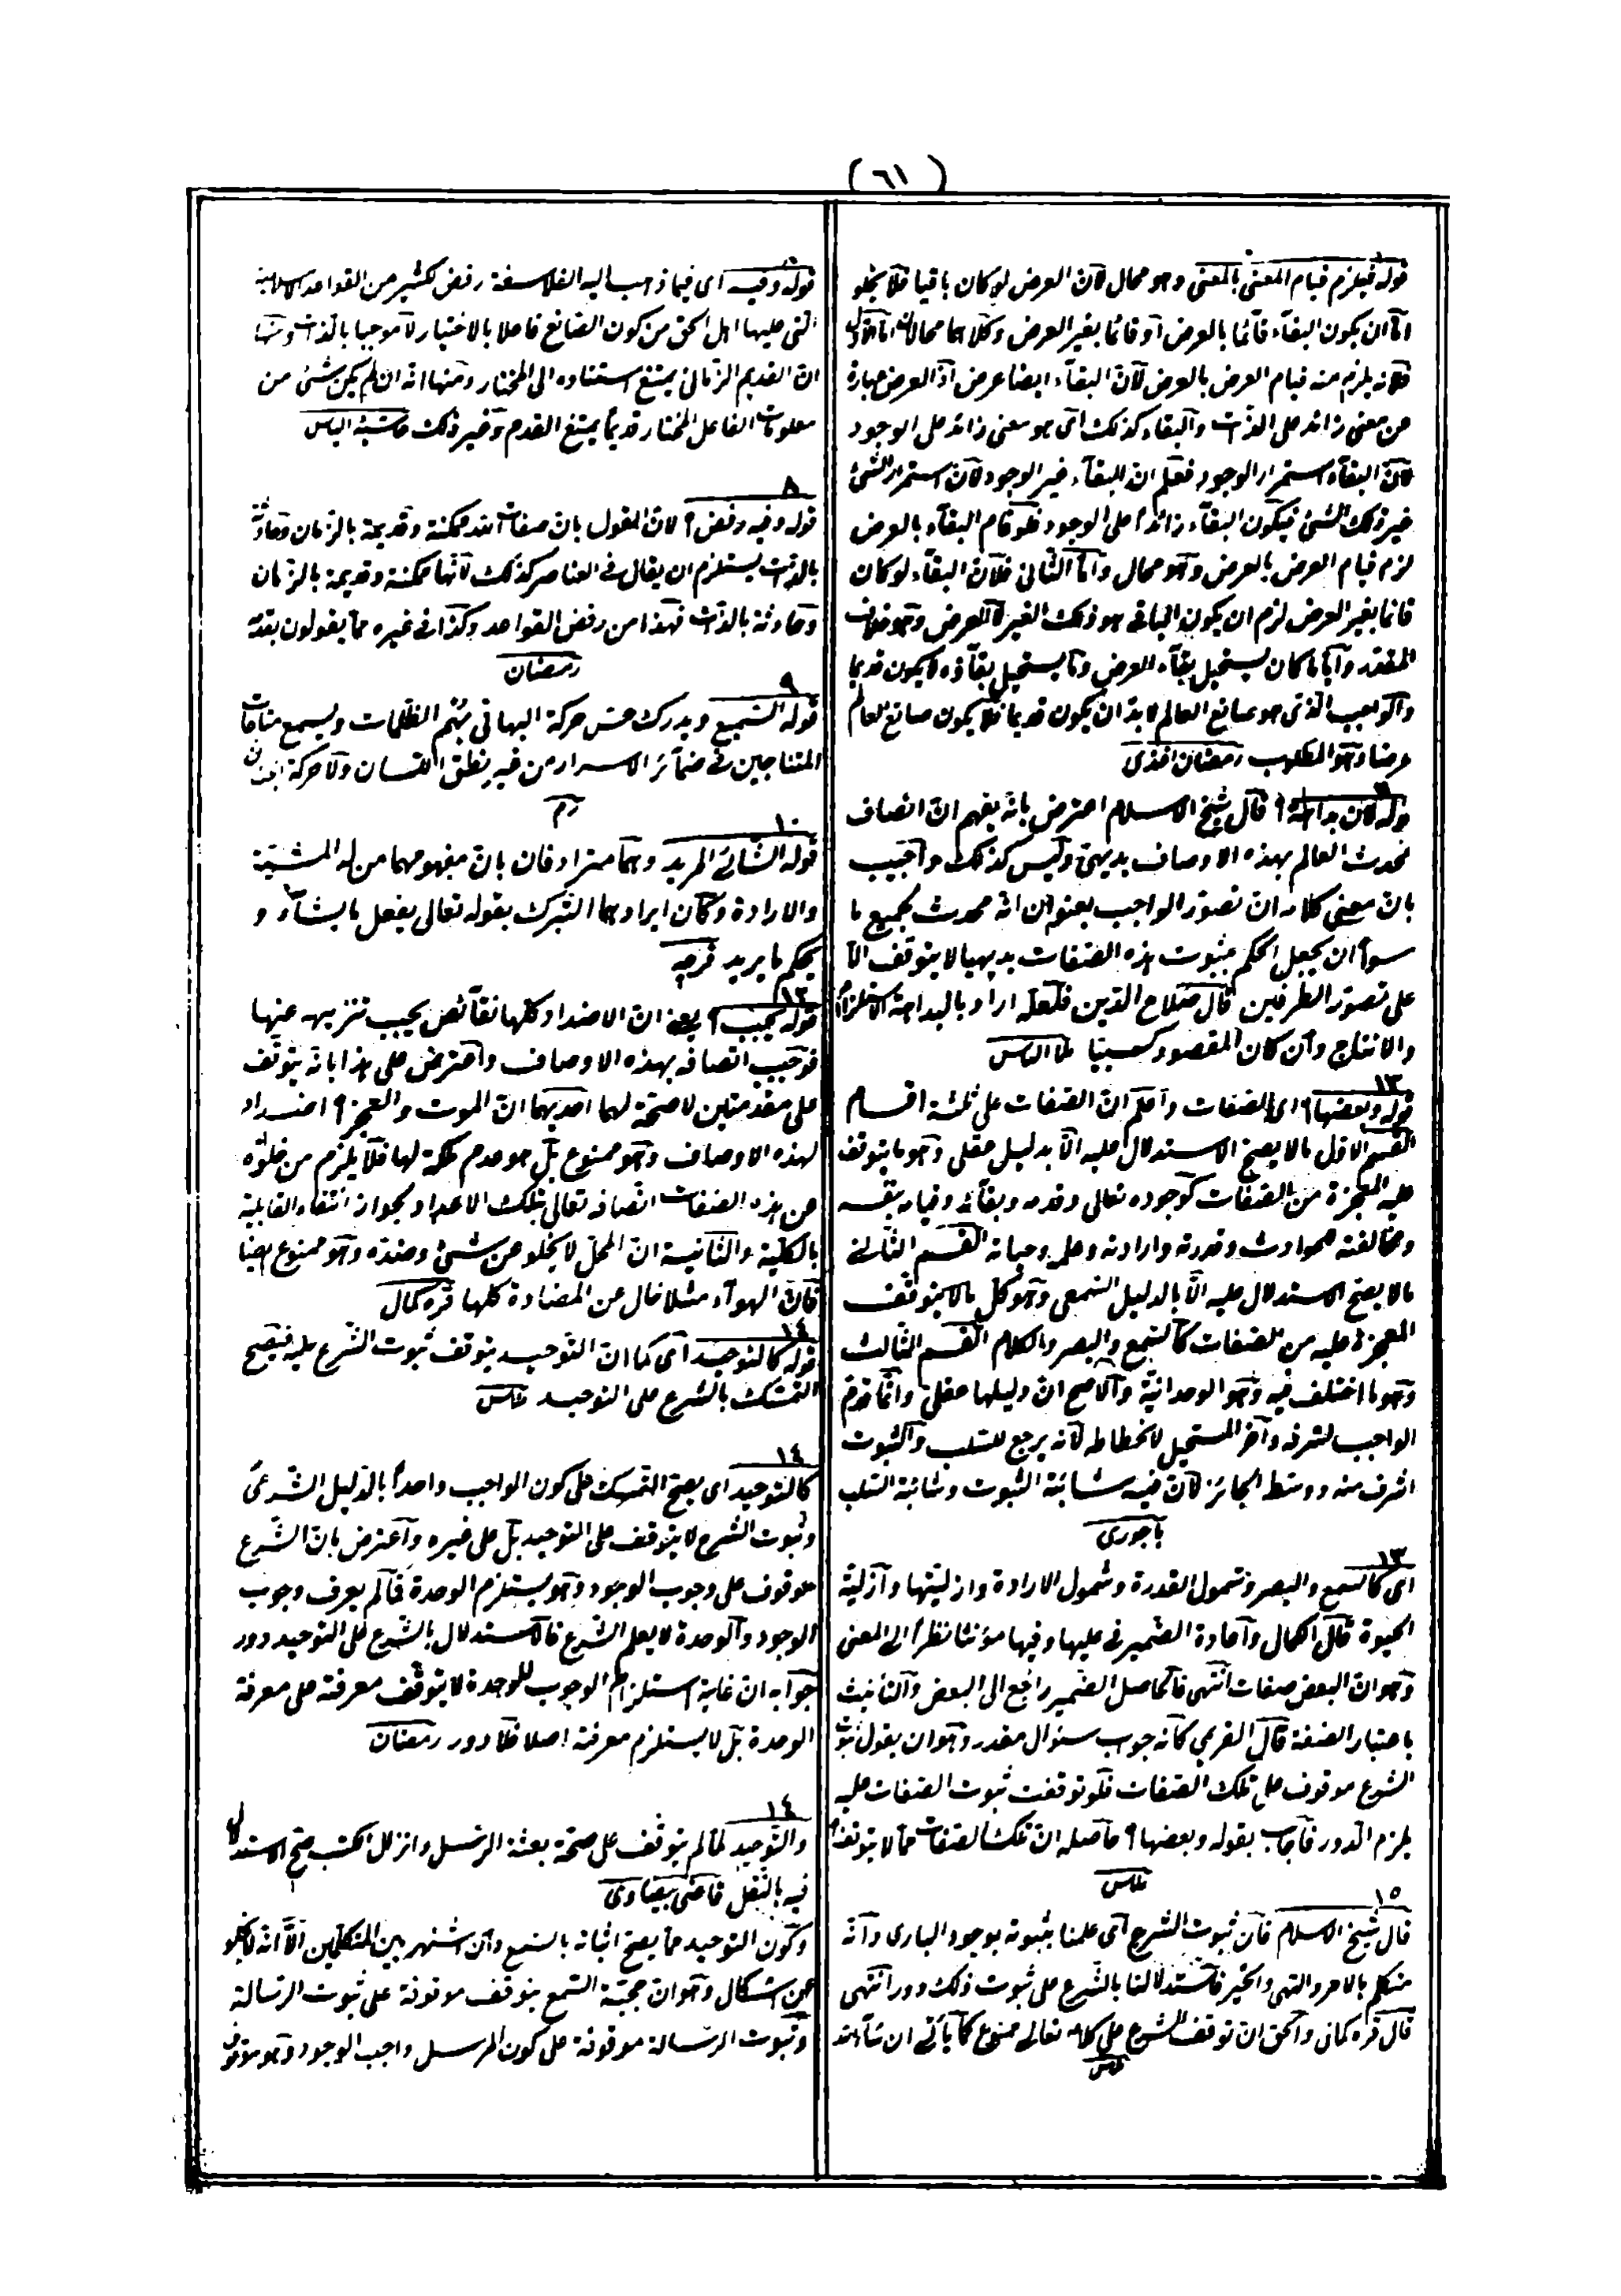 (٦١)
قوله فيلزم قيام المعنى بالمعنى وهو محال لان العرض لو كان باقيا فلا يخلو
اما ان يكون البقاء قائما بالعرض او قائما بغير العرض وكلاهما محالان اما الاول
فلانه يلزم منه قيام العرض بالعرض لان البقاء ايضا عرض اذ العرض عبارة
عن معنى زائد على الذات والبقاء كذلك اى هو معنى زائد على الوجود
لان البقاء استمرار الوجود فعلم ان البقاء غير الوجود لان استمرار الشئ
غير ذلك الشئ فيكون البقاء زائدا على الوجود فلو قام البقاء بالعرض
لزم قيام العرض بالعرض وهو محال واما الثانى فلان البقاء لو كان
قائما بغير العرض لزم ان يكون الباقى هو ذلك الغير لا العرض وهو خلاف
المقدر وايا ما كان يستحيل بقاء العرض وما يستحيل بقاؤه لا يكون قديما
والواجب الذى هو صانع العالم لا بد ان يكون قديما فلا يكون صانع العالم
عرضا وهو المطلوب رمضان افندى
٩
قوله لان بداهة ؟ قال شيخ الاسلام اعترض بانه يفهم ان اتصاف
محدث العالم بهذه الاوصاف بديهى وليس كذلك واجيب
بان معنى كلامه ان تصور الواجب بعنوان انه محدث لجميع ما
سواه ان يجعل الحكم بثبوت هذه الصفات بديهيا لا يتوقف الا
على تصور الطرفين قال صلاح الدين فلعله اراد بالبداهة الاستلزام
والانتاج وان كان المقصود كسبيا الياس
١٣
قوله وبعضها ؟ اى الصفات واعلم ان الصفات على ثلثة اقسام
القسم الاول ما لا يصح الاستدلال عليه الا بدليل عقلى وهو ما يتوقف
عليه المعجزة من الصفات كوجوده تعالى وقدمه وبقائه وقيامه بنفسه
ومخالفته للحوادث وقدرته وارادته وعلمه وحياته القسم الثانى
ما لا يصح الاستدلال عليه الا بالدليل السمعى وهو كل ما لا يتوقف
المعجزة عليه من الصفات كالسمع والبصر والكلام القسم الثالث
وهو ما اختلف فيه وهو الوحدانية والاصح ان دليلها عقلى وانما قدم
الواجب لشرفه واخر المستحيل لانحطاطه لانه يرجع للسلب والثبوت
اشرف منه ووسط الجائز لان فيه شائبة الثبوت وشائبة السلب
باجورى
١٣
اى كالسمع والبصر وشمول القدرة وشمول الارادة وازليتها وازلية
الحيوة قال الكمال واعادة الضمير فى عليها وفيها مؤنثا نظرا الى المعنى
وهو ان البعض صفات انتهى فالحاصل الضمير راجع الى البعض والتانيث
باعتبار الصفة قال الغزى كانه جواب سئوال مقدر وهو ان يقول ثبوت
الشرع موقوف على تلك الصفات فلو توقفت ثبوت الصفات عليه
يلزم الدور فاجاب بقوله وبعضها ؟ حاصله ان تلك الصفات مما لا يتوقف
١٥
قال شيخ الاسلام فان ثبوت الشرع اى علمنا بثبوته بوجود البارى وانه
متكلم بالامر والنهى والخير فاستدلالنا بالشرع على ثبوت ذلك دور انتهى
قال قره كمال والحق ان توقف الشرع على كلامه تعالى ممنوع كما يأتى ان شاء الله
قوله وفيه اى فيما ذهب اليه الفلاسفة رفض لكثير من القواعد الاسلامية
التى عليها اهل الحق من كون الصانع فاعلا بالاختيار لا موجبا بالذات ومنها
ان القديم الزمانى يمتنع استناده الى المختار ومنها انه ان لم يكن شئ من
معلومات الفاعل المختار قديما يمتنع القدم وغير ذلك حاشية الياس
٨
قوله وفيه رفض ؟ لان القول بان صفات الله ممكنة وقديمة بالزمان وحادثة
بالذات يستلزم ان يقال فى العناصر كذلك لانها ممكنة وقديمة بالزمان
وحادثة بالذات فهذا من رفض القواعد وكذا فى غيره مما يقولون بقدمه
رمضان
٩
قوله السميع ويدرك حس حركة البها فى بهم الظلمات ويسمع مناجات
المتناجين فى ضمائر الاسرار من غير نطق اللسان ولا حركة
١٠
قوله الشائى المريد وهما مترادفان بان مفهومهما من له المشيئة
والارادة وكان ايرادهما التبرك بقوله تعالى يفعل ما يشاء و
يحكم ما يريد فرجه
١٢
قوله يجب ؟ يعنى ان الاضداد كلها نقائص يجب تنزيهه عنها
فوجب اتصافه بهذه الاوصاف واعترض على هذا بانه يتوقف
على مقدمتين لا صحة لهما احديهما ان الموت والعجز ؟ اضداد
لهذه الاوصاف وهو ممنوع بل هو عدم ملكة لها فلا يلزم من خلوه
عن هذه الصفات اتصافه تعالى بتلك الاعداد لجواز انتفاء القابلية
بالكلية والثانية ان المحل لا يخلو عن شئ وضده وهو ممنوع ايضا
فان الهواء مثلا خال عن المضادة كلها قره كمال
١٤
قوله كالتوحيد اى كما ان التوحيد يتوقف ثبوت الشرع عليه فيصح
التمسك بالشرع على التوحيد
١٤
كالتوحيد اى يصح التمسك على كون الواجب واحدا بالدليل الشرعى
وثبوت الشرع لا يتوقف على التوحيد بل على غيره واعترض بان الشرع
موقوف على وجوب الوجود وهو يستلزم الوحدة فما لم يعرف وجوب
الوجود والوحدة لا يعلم الشرع فالاستدلال بالشرع على التوحيد دور
جوابه ان غاية استلزام الوجوب للوحدة لا يتوقف معرفته على معرفة
الوحدة بل لا يستلزم معرفته اصلا فلا دور رمضان
١٤
والتوحيد لما لم يتوقف على صحة بعثة الرسل وانزال الكتب صح الاستدلال
فيه بالنقل قاضى بيضاوى
وكون التوحيد مما يصح اثباته بالسمع وان اشتهر بين المتكلمين الا انه لا يخلو
عن اشكال وهو ان حجية السمع يتوقف موقوفة على ثبوت الرسالة
وثبوت الرسالة موقوفة على كون المرسل واجب الوجود وهو موقوف